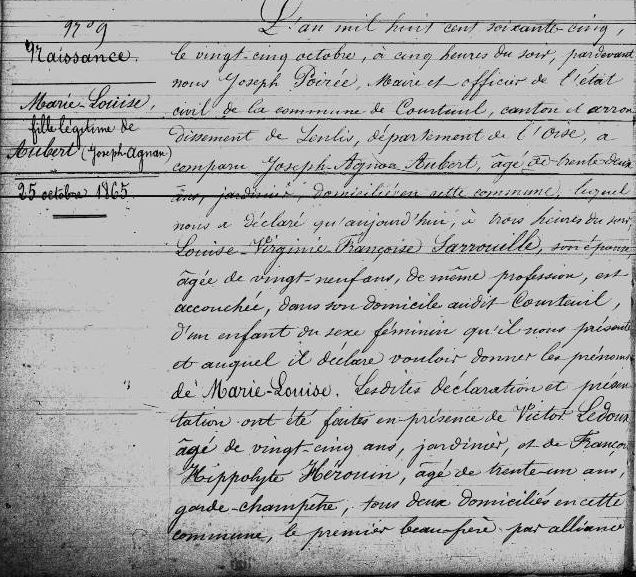 N° 9
Naissance.
Marie-Louise,
fille légitime de
Aubert (Joseph-Agnan)
25 octobre 1865.
L'an mil huit cent soixante cinq,
le vingt-cinq octobre, à cinq heures du soir, pardevant
nous Joseph Poirée, Maire et officier de l'état
civil de la commune de Courteuil, canton et arron
dissement de Senlis, département de l'Oise, a
comparu Joseph-Agnan Aubert, âgé de trente deux
ans, jardinier, domicilié en cette commune, lequel
nous a déclaré qu'aujourd'hui, à trois heures du soir,
Louise-Virginie Françoise Sarrouelle, son épouse
âgée de vingt-neuf ans, de même profession, est
accouchée, dans son domicile audit Courteuil,
d'un enfant du sexe féminin qu'il nous présente
et auquel il déclare vouloir donner les prénoms
de Marie-Louise. Lesdites déclaration et présen
tation ont été faites en présence de Victor Ledoux
âgé de vingt-cinq ans, jardinier, et de François
Hippolyte Hérouin, âgé de trente-un ans,
garde-champêtre, tous deux domiciliés en cette
commune, le premier beau-frère par alliance